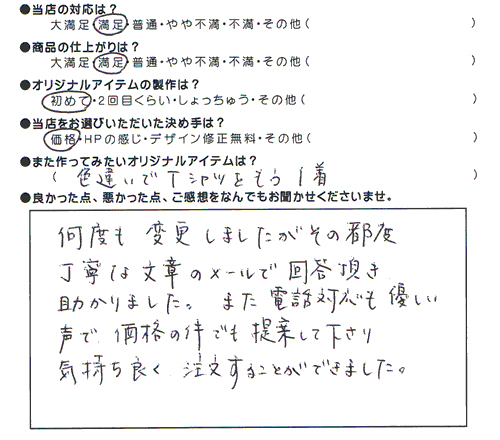 ●当店の対応は？
大満足・満足・普通・やや不満・不満・その他（　　　）
●商品の仕上がりは？
大満足・満足・普通・やや不満・不満・その他（　　　）
●オリジナルアイテムの製作は？
初めて・2回目くらい・しょっちゅう・その他（　　　）
●当店をお選びいただいた決め手は？
価格・HPの感じ・デザイン修正無料・その他（　　　）
●また作ってみたいオリジナルアイテムは？
（　色違いでTシャツをもう1着　）
●良かった点、悪かった点、ご感想をなんでもお聞かせくださいませ。
何度も変更しましたがその都度
丁寧な文章のメールで回答頂き
助かりました。また電話対応も優しい
声で、価格の件でも提案して下さり
気持ち良く注文することができました。